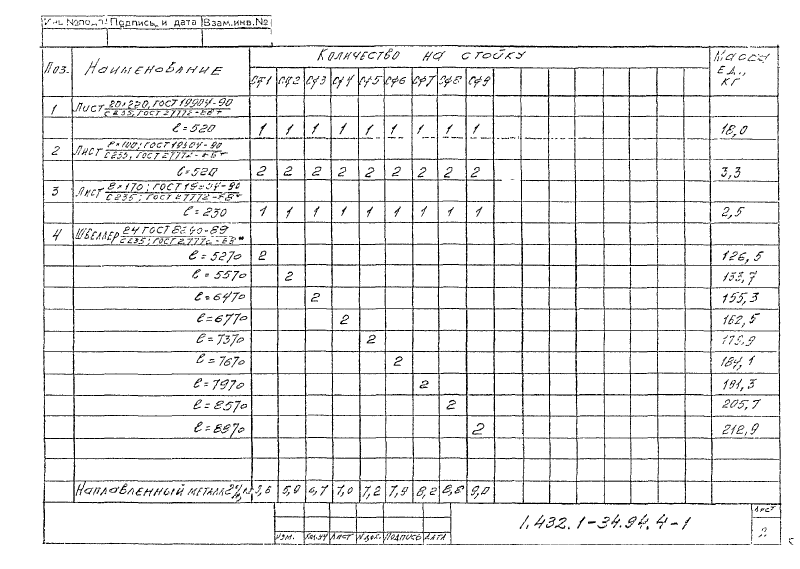 Подпись и дата Взам.инв.№
Поз. Наименование Количество на стойку Масса ед., кг
СФ1 СФ2 СФ3 СФ4 СФ5 СФ6 СФ7 СФ8 СФ9
1 Лист 20×220, ГОСТ 19904-90
С235, ГОСТ 27772-88*
ℓ=520 1 1 1 1 1 1 1 1 1 18,0
2 Лист 8×100; ГОСТ 19904-90
С235, ГОСТ 27772-88*
ℓ=520 2 2 2 2 2 2 2 2 2 3,3
3 Лист 8×170; ГОСТ 19904-90
С235; ГОСТ 27772-88*
ℓ=230 1 1 1 1 1 1 1 1 1 2,5
4 Швеллер 24 ГОСТ 8240-89
С235; ГОСТ 27772-88*
ℓ=5270 2 126,5
ℓ=5570 2 133,7
ℓ=6470 2 155,3
ℓ=6770 2 162,5
ℓ=7370 2 176,9
ℓ=7670 2 184,1
ℓ=7970 2 191,3
ℓ=8570 2 205,7
ℓ=8870 2 212,9
Наплавленный металл 5,9 6,7 7,0 7,2 7,9 8,2 8,8 9,0
1.432.1-34.94.4-1 Лист
2
Изм. Кол.уч Лист N док. Подпись Дата